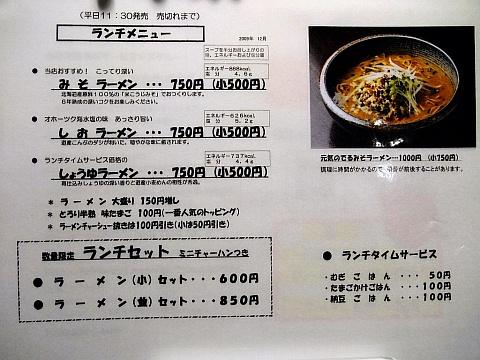 (平日11:30発売 売切れまで)
ランチメニュー
2009年 12月
スープを半分お召し上がりの
● 当店おすすめ! こってり深い
エネルギー868kcal
塩分 4.6g
みそラーメン・・・750円(小500円)
北海道産原料100%の「米こうじみそ」でおつくりします。
6年熟成の深いコクをお楽しみください。
● オホーツク海水塩の味 あっさり旨い
エネルギー626kcal
塩分 5.2g
しおラーメン・・・750円(小500円)
道産こんぶのダシが利いた、穏やかな味に癒されます。
● ランチタイムサービス価格の
エネルギー737kcal
塩分 4.4g
しょうゆラーメン・・・750円(小500円)
* ラーメン 大盛り 150円増し
* とろり半熟 味たまご 100円(一番人気のトッピング)
* ラーメンチャーシュー抜きは100円引き(小は50円引き)
元気のでるみそラーメン・・・1000円 (小750円)
調理に時間がかかるので、順番が前後することがあります。
数量限定 ランチセット ミニチャーハンつき
● ラーメン(小)セット・・・600円
● ラーメン(並)セット・・・850円
● ランチタイムサービス
・むぎごはん ・・・ 50円
・たまごかけごはん ・・・100円
・納豆ごはん ・・・100円